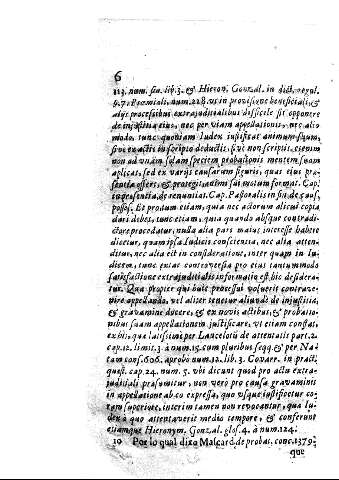 6
113. num. fin. lib. 3. & Hieron. Gonzal. in dict. regul.
9. 7. Proæmiali, num. 218. vt in provisione beneficiali, &
alijs processibus extrajuditialibus difficile sit opponere
de injustitia eius, nec per viam appellationis, nec alio
modo, tunc quoniam Iudex justificat animum suum,
sivè ex actis in scriptis deductis, sivè non scriptis, etenim
non ad vnam solam speciem probationis mentem suam
aplicat, sed ex varijs causarum figuris, quas eius præ-
sentia offert, & protegit, animi sui motum format. Cap.
in præsentia, de renuntiat. Cap. Pastoralis in fin. de caus.
posses. Et proprietat. etiam, quia nec actorum alicui copia
dari debet, tunc etiam, quia quando absque contradi-
ctore procedatur, nulla alia pars maius interesse habere
dicetur, quam ipsa Iudicis conscientia, nec alia atten-
ditur, nec alia eit in consideratione, inter quam in Iu-
dicem, tunc exiat controversia pro eius tantummodo
satisfactione extrajuditialis informatio est, hic desidera-
tur. Qua propter qui huic processui voluerit contrave-
nire appellando, vel aliter tenetur aliunde de injustitia,
& gravamine ducere, & ex novis actibus, & probatio-
nibus suam appellationem justificare, vt etiam constat,
ex his, quæ latissimè per Lancelotũ de attentatis part. 2.
cap. 12. limit. 3. à num. 15. cum pluribus seqq. & per Nat
tam cons. 606. aprobo num. 12. lib. 3. Covarr. in pract.
quæst. cap. 24. num. 5. vbi dicunt quod pro actu extra-
juditiali præsumitur, non verò pro causa gravaminis
in appellatione ab eo expressa, quo vsque justificetur co-
ram superiore, interim tamen non revocantur, quæ Iu-
dex à quo attentaverit medio tempore, & conferunt
etiam per Hieronym. Gonzal. glos. 4. à num. 124.
10 Por lo qual dixo Mascard. de probat. conc. 1379.
que